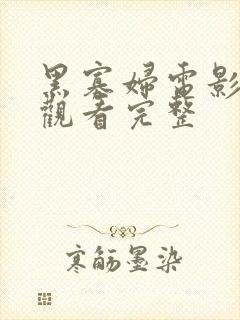 黑寡婦電影
觀看完整
寒舫墨染